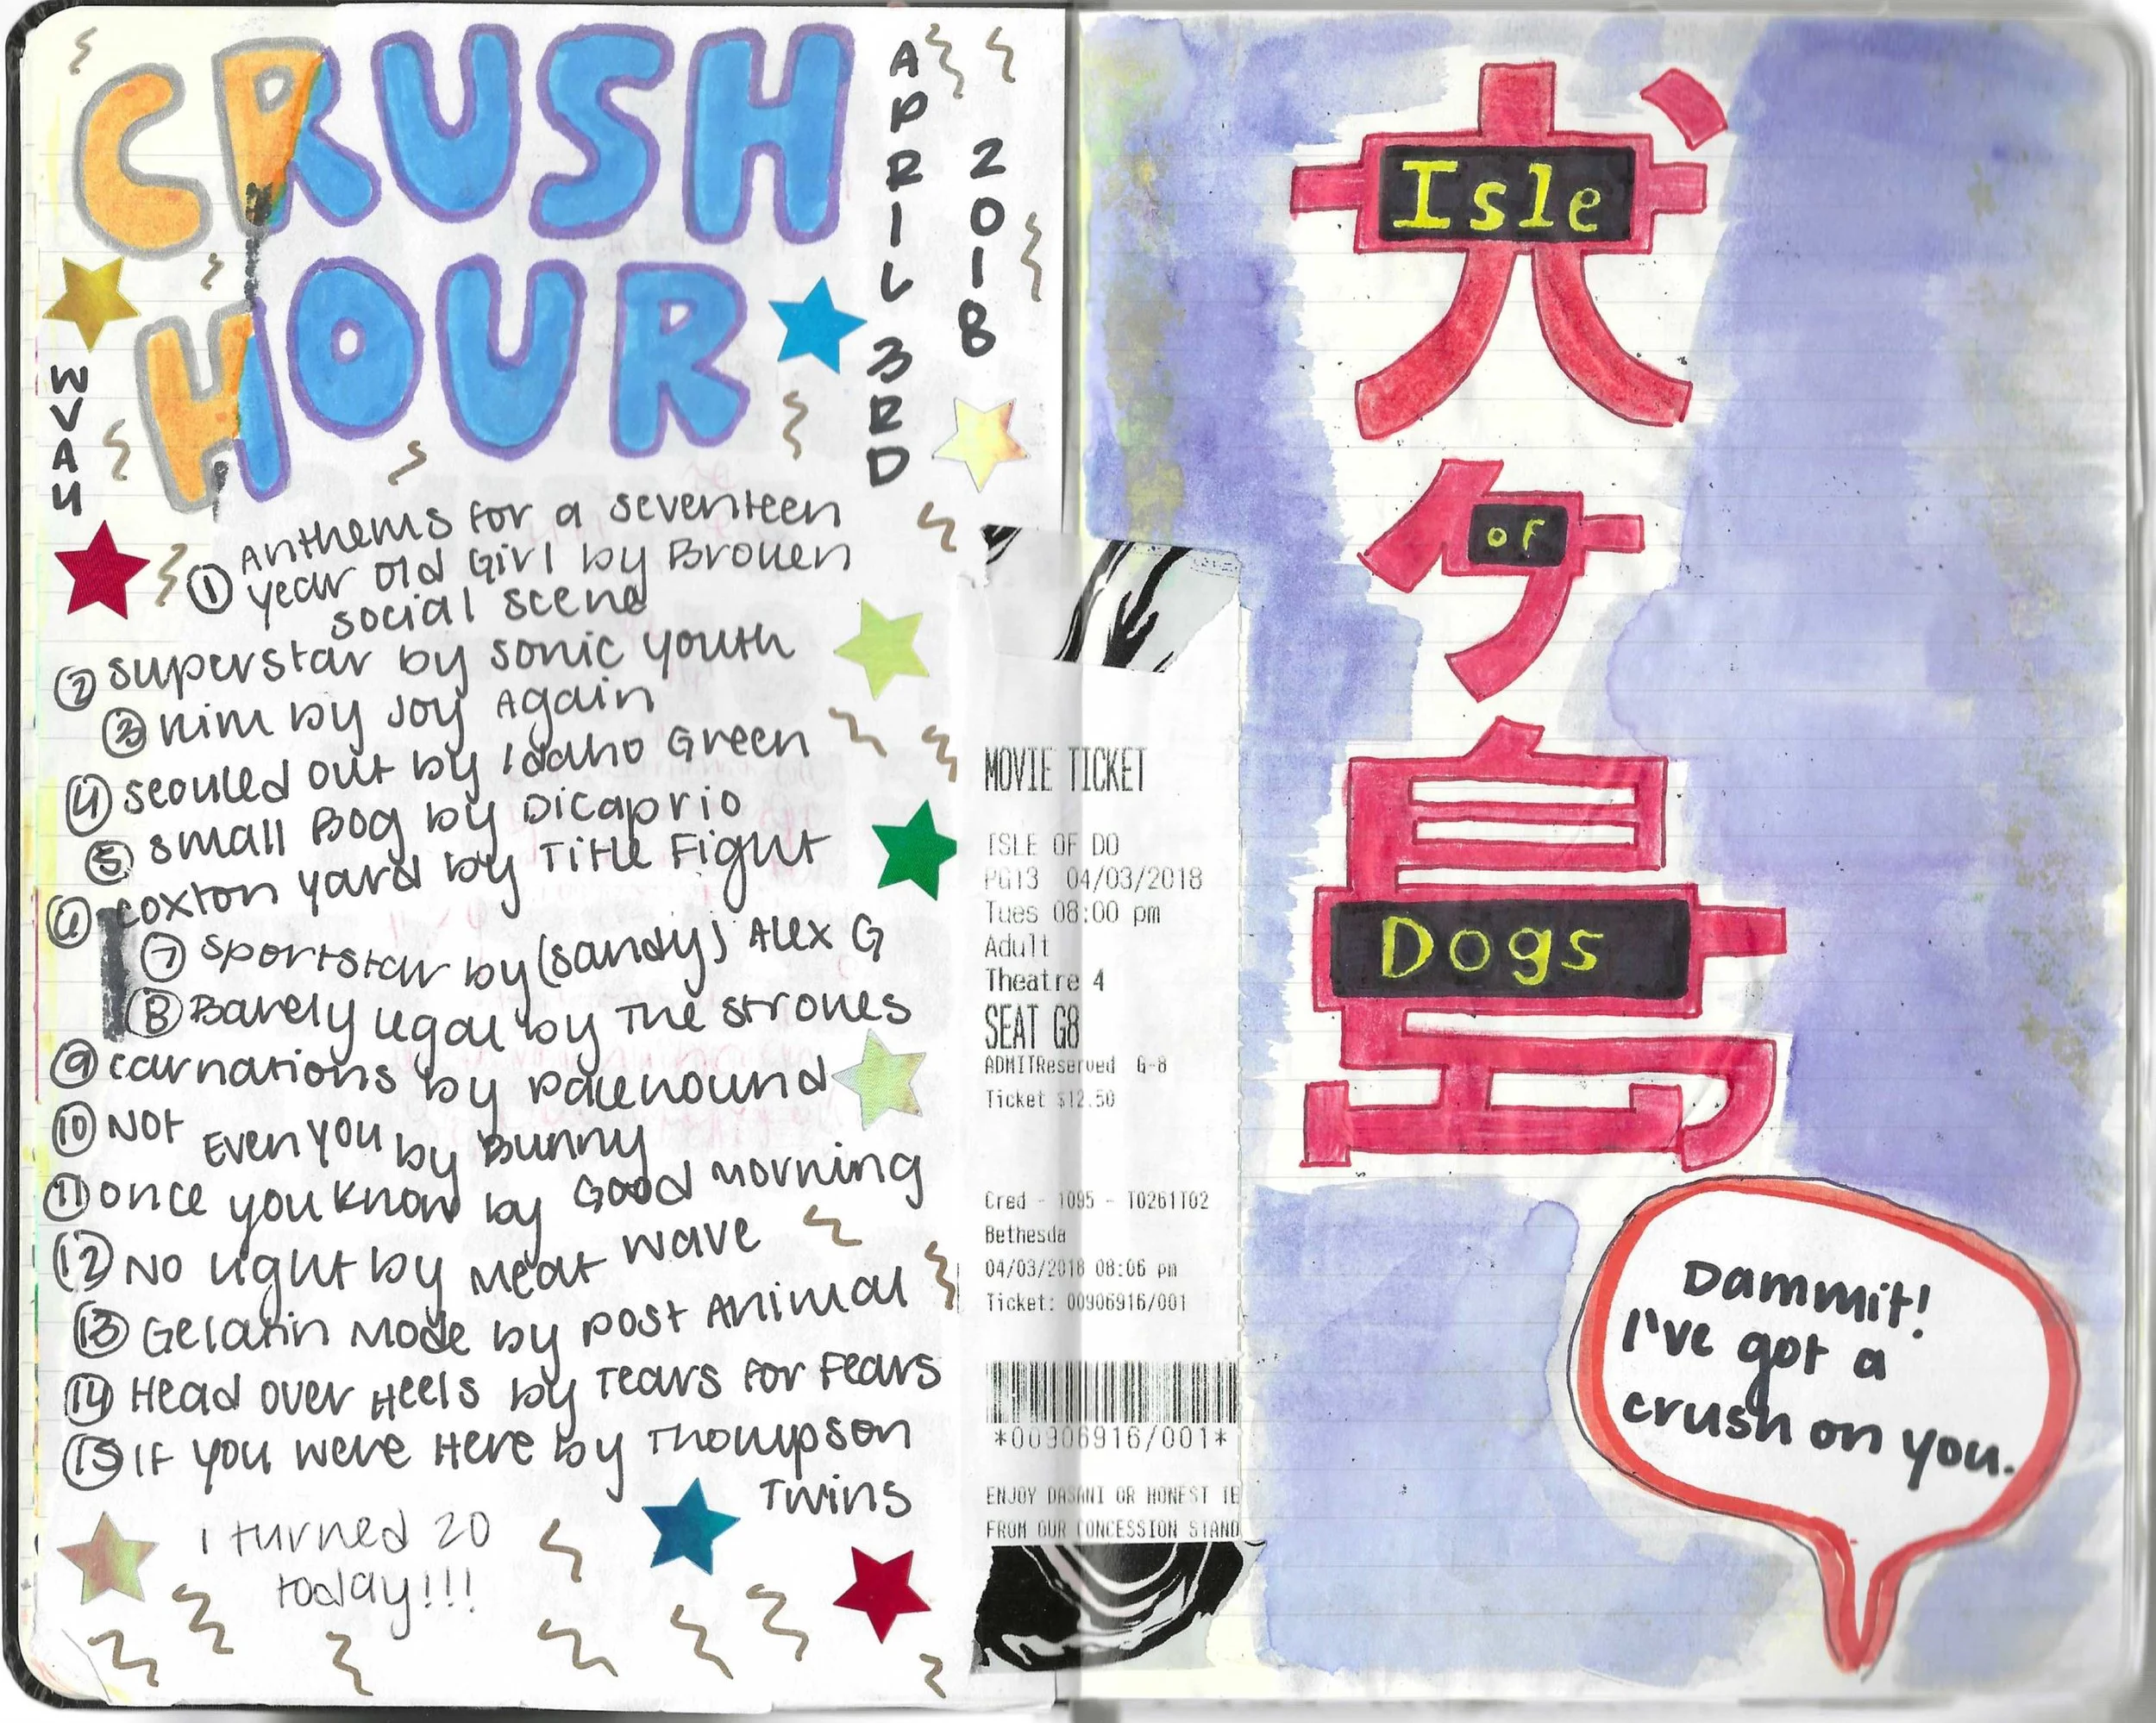 CRUSH
HOUR
APRIL 3RD
2018
WVAU
① Anthems for a seventeen
year old Girl by Broken
social scene
② superstar by sonic youth
③ Kim by Joy Again
④ scouled out by Idaho Green
⑤ small Bog by Dicaprio
⑥ coxton yard by Title Fight
⑦ sportstar by (sandy) Alex G
⑧ Barely Legal by The Strokes
⑨ carnations by palehound
⑩ Not Even you by Bunny
⑪ once you know by Good Morning
⑫ No Light by Meat wave
⑬ Gelatin Mode by post Animal
⑭ Head over Heels by Tears for Fears
⑮ If you were Here by Thompson
Twins
I turned 20
today!!!
MOVIE TICKET
ISLE OF DO
PG13 04/03/2018
Tues 08:00 pm
Adult
Theatre 4
SEAT G8
ADMITReserved G-8
Ticket $12.50
Cred - 1095 - T0261T02
Bethesda
04/03/2018 08:06 pm
Ticket: 00906916/001
*00906916/001*
ENJOY DASANI OR HONEST TE
FROM OUR CONCESSION STAND
犬
Isle
ケ
of
島
Dogs
Dammit!
I've got a
crush on you.